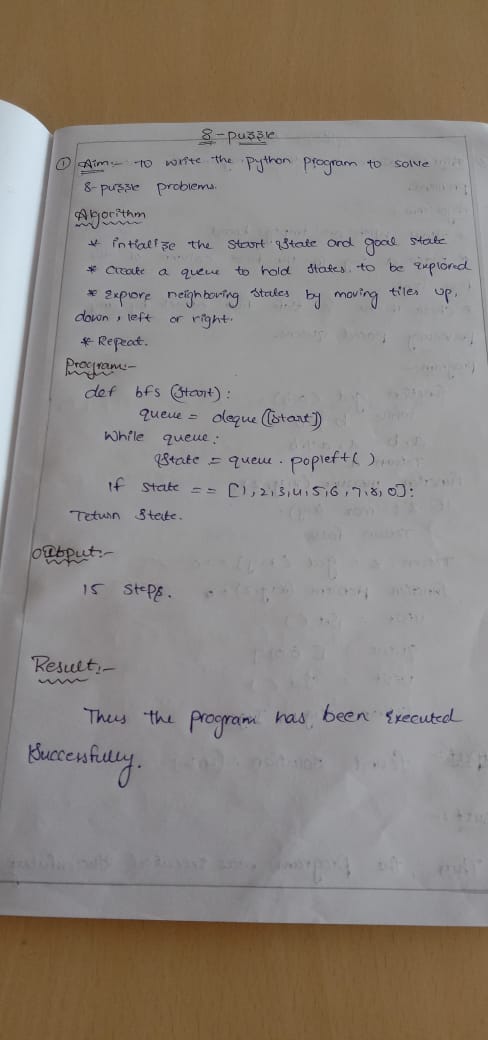 8-puzzle
① Aim:- To write the python program to solve
8-puzzle problems.
Algorithm
* intialize the start state and goal state
* Create a queue to hold states to be explored
* Explore neighboring states by moving tiles up,
down, left or right.
* Repeat.
Program:-
def bfs (start):
queue = deque ([start])
While queue:
State = queue. popleft( )
if state == [1,2,3,4,5,6,7,8,0]:
return State.
Output:-
15 steps.
Result:-
Thus the program has been executed
Successfully.